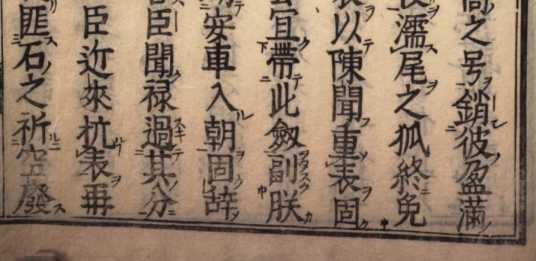 之号鎖彼盈滿
濡尾之狐終免
以陳聞重表固
宜帶此劔副朕
安車入朝固辞
臣聞禄過其分
臣近來杭表再
匪石之祈空廢